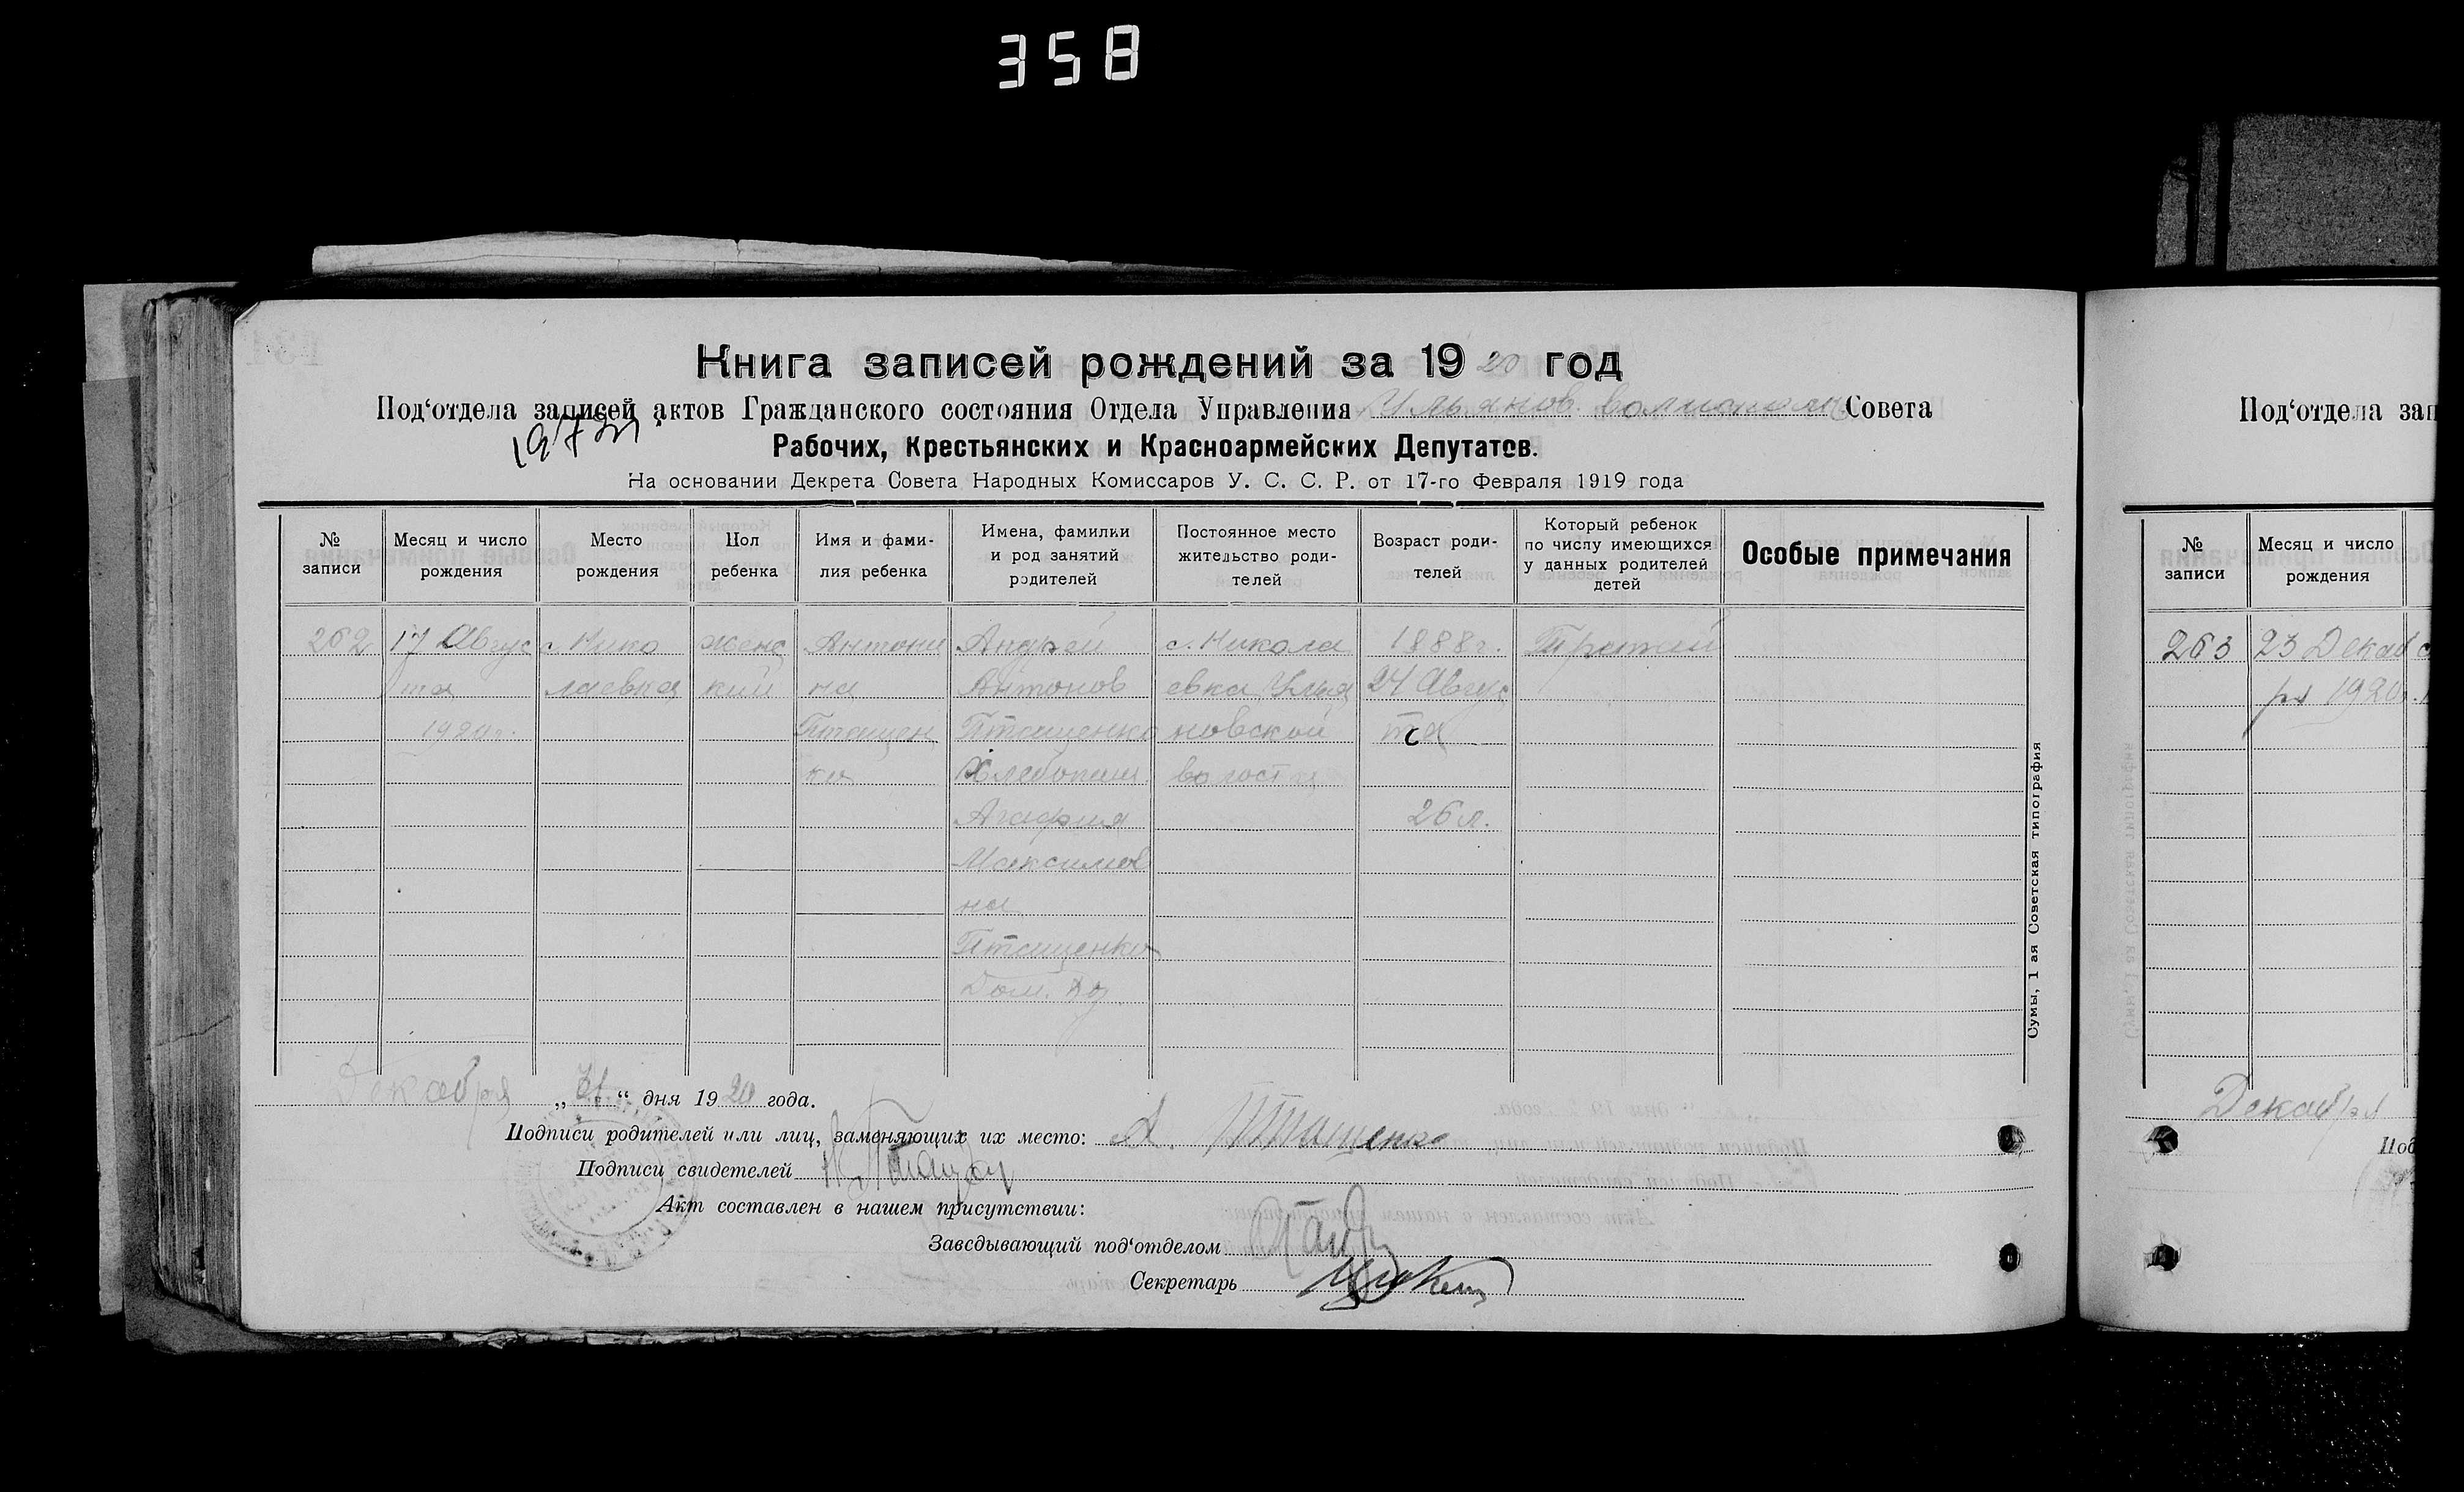 358
Книга записей рождений за 1920 год
Под‘отдела записей актов Гражданского состояния Отдела Управления Ульянов. Совета
Рабочих, Крестьянских и Красноармейских Депутатов.
На основании Декрета Совета Народных Комиссаров У. С. С. Р. от 17-го Февраля 1919 года
№ записи
Месяц и число рождения
Место рождения
Пол ребенка
Имя и фами-
лия ребенка
Имена, фамилии
и род занятий
родителей
Постоянное место
жительство роди-
телей
Возраст роди-
телей
Который ребенок
по числу имеющихся
у данных родителей
детей
Особые примечания
262
17 Авгус
та
1920г.
с. Нико
лаевка
женс
кий
Антони
на
Птащен
ко
Андрей
Антонов
Птащенко
Хлебопаш.
Агафия
Максимов
на
Птащенко
Дом. хоз.
с. Никола
евка Улья
новской
волости
1888г.
24 Авгус
та
26 л.
Третий
Декабря „31“ дня 1920 года.
Подписи родителей или лиц, заменяющих их место: А. Птащенко
Подписи свидетелей
Акт составлен в нашем присутствии:
Заведывающий под‘отделом
Секретарь
Сумы, 1 ая Советская типография
Под‘отдела зап
№ записи
Месяц и число рождения
263
23 Декаб
ря 1920г.
Декабря
Под